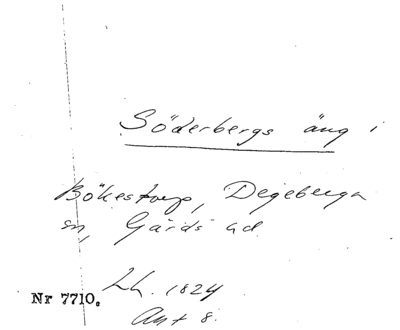 Söderbergs äng i
Bökestorp, Degeberga
sn, Gärds hd
Lh. 1824
Nr 7710.
Akt 8.